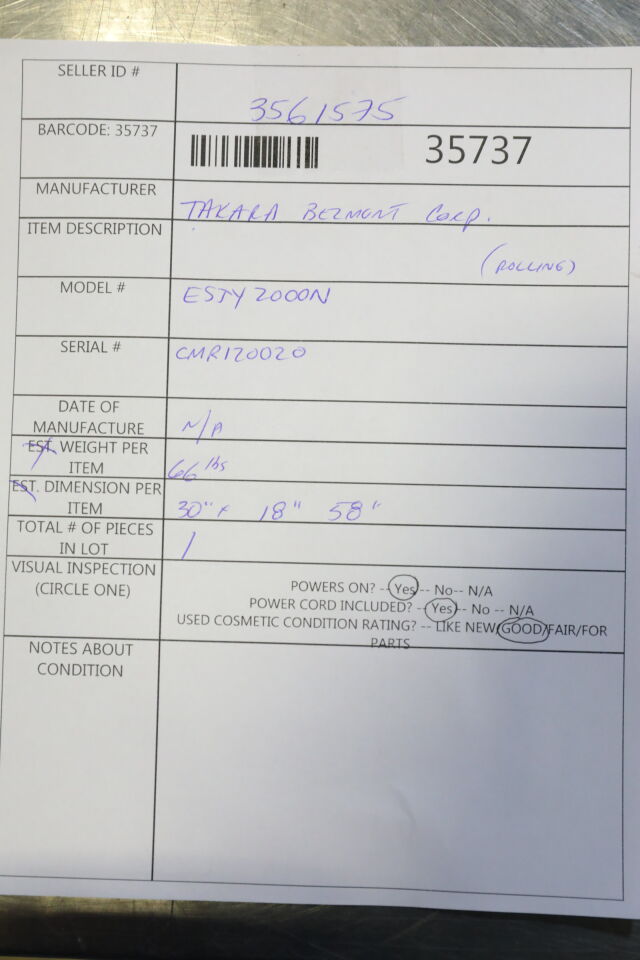 SELLER ID #
3561575
BARCODE: 35737
35737
MANUFACTURER
TAKARA BELMONT CORP.
ITEM DESCRIPTION
(ROLLING)
MODEL #
ESTY 2000N
SERIAL #
CMR120020
DATE OF
MANUFACTURE
N/A
EST. WEIGHT PER
ITEM
66 lbs
EST. DIMENSION PER
ITEM
30" x 18" 58"
TOTAL # OF PIECES
IN LOT
1
VISUAL INSPECTION
(CIRCLE ONE)
POWERS ON? -- Yes -- No-- N/A
POWER CORD INCLUDED? -- Yes -- No -- N/A
USED COSMETIC CONDITION RATING? -- LIKE NEW/GOOD/FAIR/FOR
PARTS
NOTES ABOUT
CONDITION